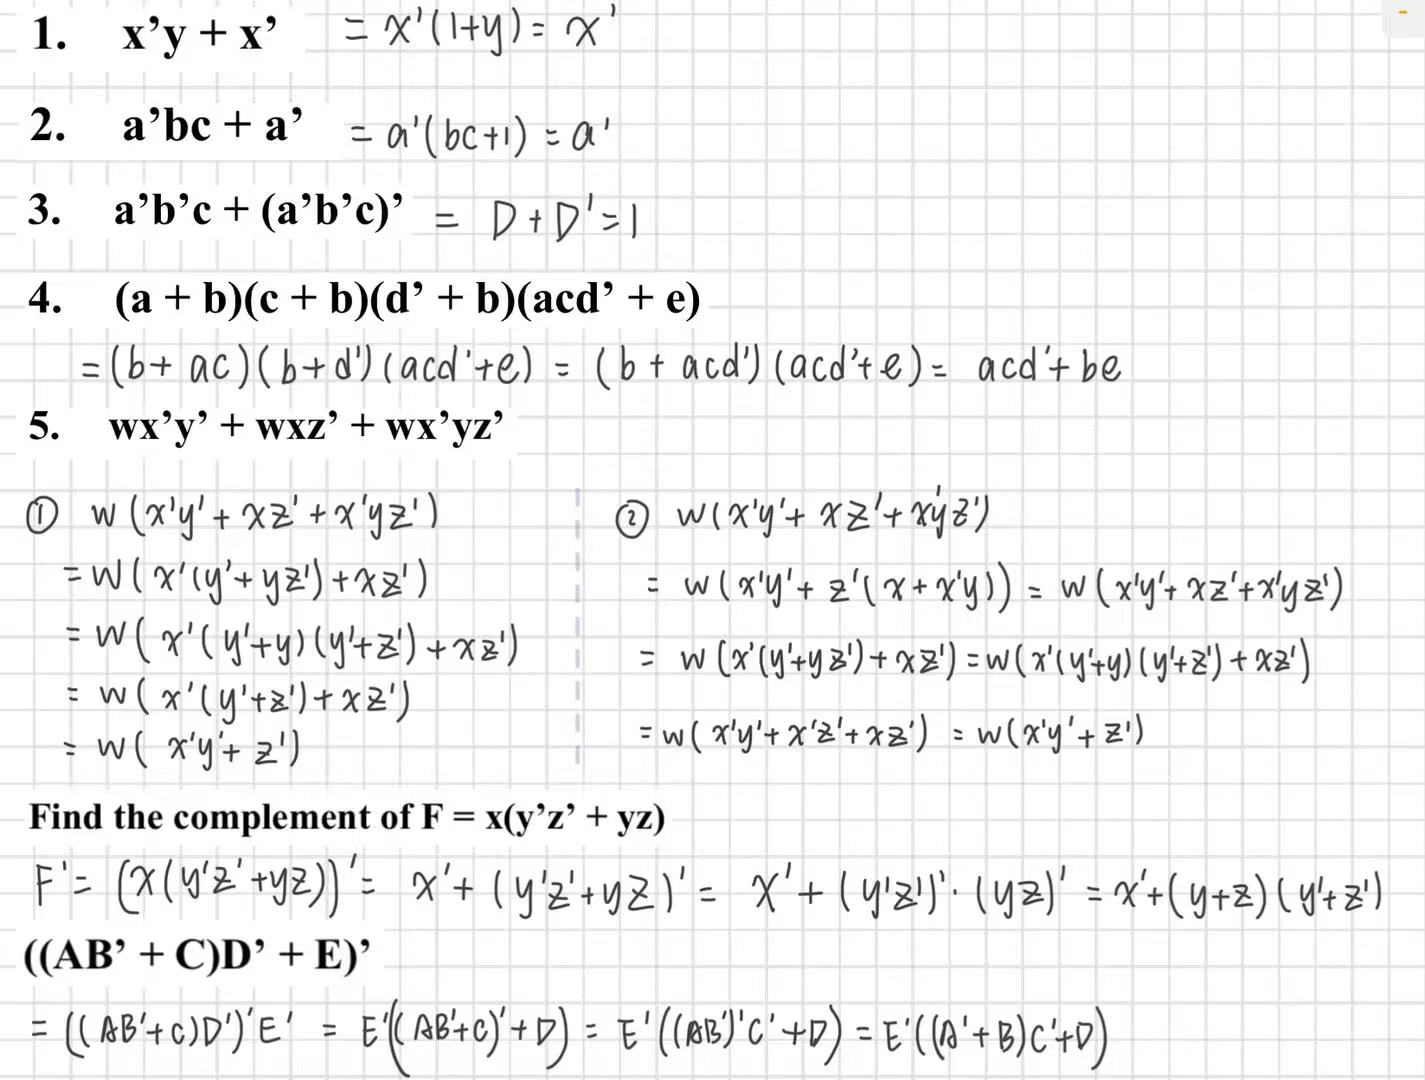 1. x’y + x’ = x'(1+y) = x'
2. a’bc + a’ = a'(bc+1) = a'
3. a’b’c + (a’b’c)’ = D + D' = 1
4. (a + b)(c + b)(d’ + b)(acd’ + e)
= (b + ac)(b + d')(acd' + e) = (b + acd')(acd' + e) = acd' + be
5. wx’y’ + wxz’ + wx’yz’
① w(x'y' + xz' + x'yz')
= w(x'(y' + yz') + xz')
= w(x'(y'+y)(y'+z') + xz')
= w(x'(y'+z') + xz')
= w(x'y' + z')
② w(x'y' + xz' + x'yz')
= w(x'y' + z'(x + x'y)) = w(x'y' + xz' + x'yz')
= w(x'(y'+yz') + xz') = w(x'(y'+y)(y'+z') + xz')
= w(x'y' + x'z' + xz') = w(x'y' + z')
Find the complement of F = x(y’z’ + yz)
F' = (x(y'z' + yz))' = x' + (y'z' + yz)' = x' + (y'z')' · (yz)' = x' + (y+z)(y'+z')
((AB’ + C)D’ + E)’
= ((AB'+C)D')'E' = E'((AB'+C)' + D) = E'((AB')'C' + D) = E'((A'+B)C'+D)